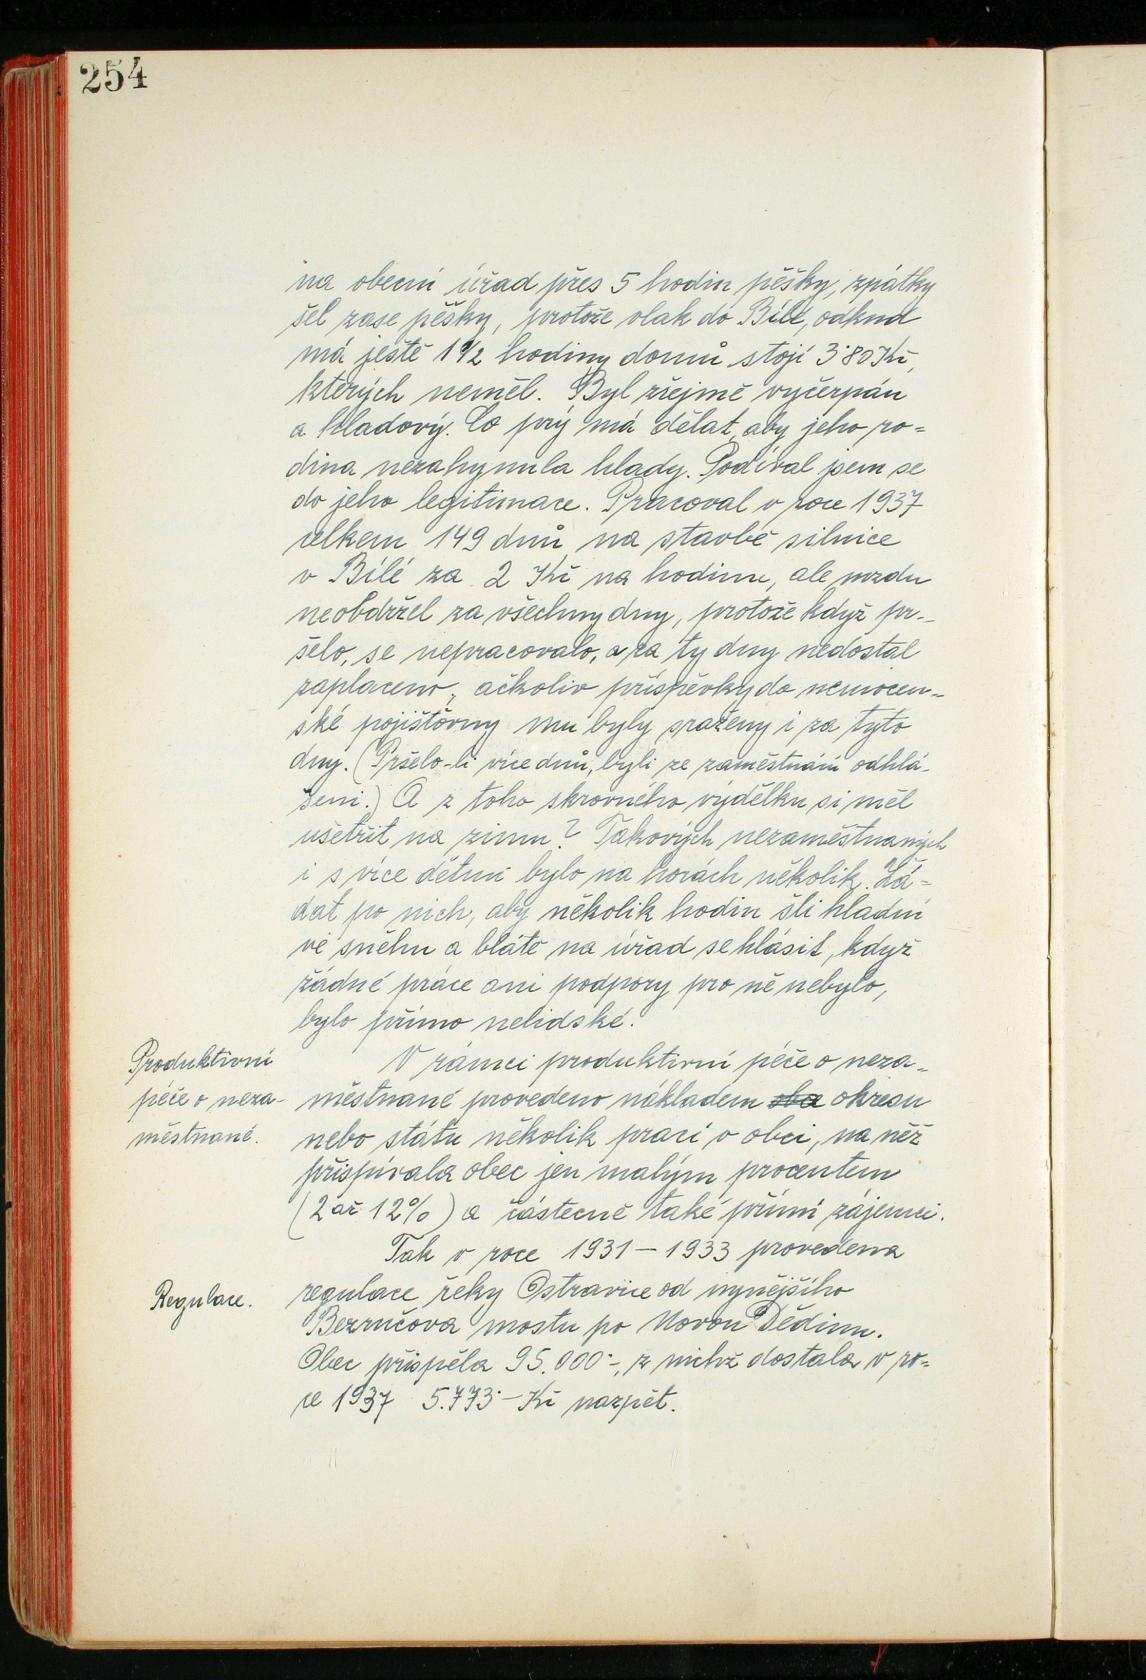 254
na obecní úřad přes 5 hodin pěšky, zpátky
šel zase pěšky, protože vlak do Bílé, odkud
má ještě 1 1/2 hodiny domů stojí 3·80 Kč,
kterých neměl. Byl zřejmě vyčerpán
a hladový. Co prý má dělat, aby jeho ro=
dina nezahynula hlady. Podíval jsem se
do jeho legitimace. Pracoval v roce 1937
celkem 149 dnů na stavbě silnice
v Bílé za 2 Kč na hodinu, ale mzdu
neobdržel za všechny dny, protože když pr-
šelo, se nepracovalo, a za ty dny nedostal
zaplaceno, ačkoliv příspěvky do nemocen-
ské pojišťovny mu byly sraženy i za tyto
dny. (Pršelo-li více dnů, byli ze zaměstnání odhlá-
šeni.) A z toho skrovného výdělku si měl
ušetřit na zimu? Takových nezaměstnaných
i s více dětmi bylo na horách několik. Žá=
dat po nich, aby několik hodin šli hladní
ve sněhu a blátě na úřad se hlásit, když
žádné práce ani podpory pro ně nebylo,
bylo přímo nelidské.
Produktivní
péče o neza-
městnané.
V rámci produktivní péče o neza-
městnané provedeno nákladem sba okresu
nebo státu několik prací v obci, na něž
přispívala obec jen malým procentem
(2 až 12%) a částečně také přímí zájemci.
Tak v roce 1931 – 1933 provedena
Regulace.
regulace řeky Ostravice od nynějšího
Bezručova mostu po Novou Dědinu.
Obec přispěla 95.000·-, z nichž dostala v ro=
ce 1937 5.773·– Kč nazpět.